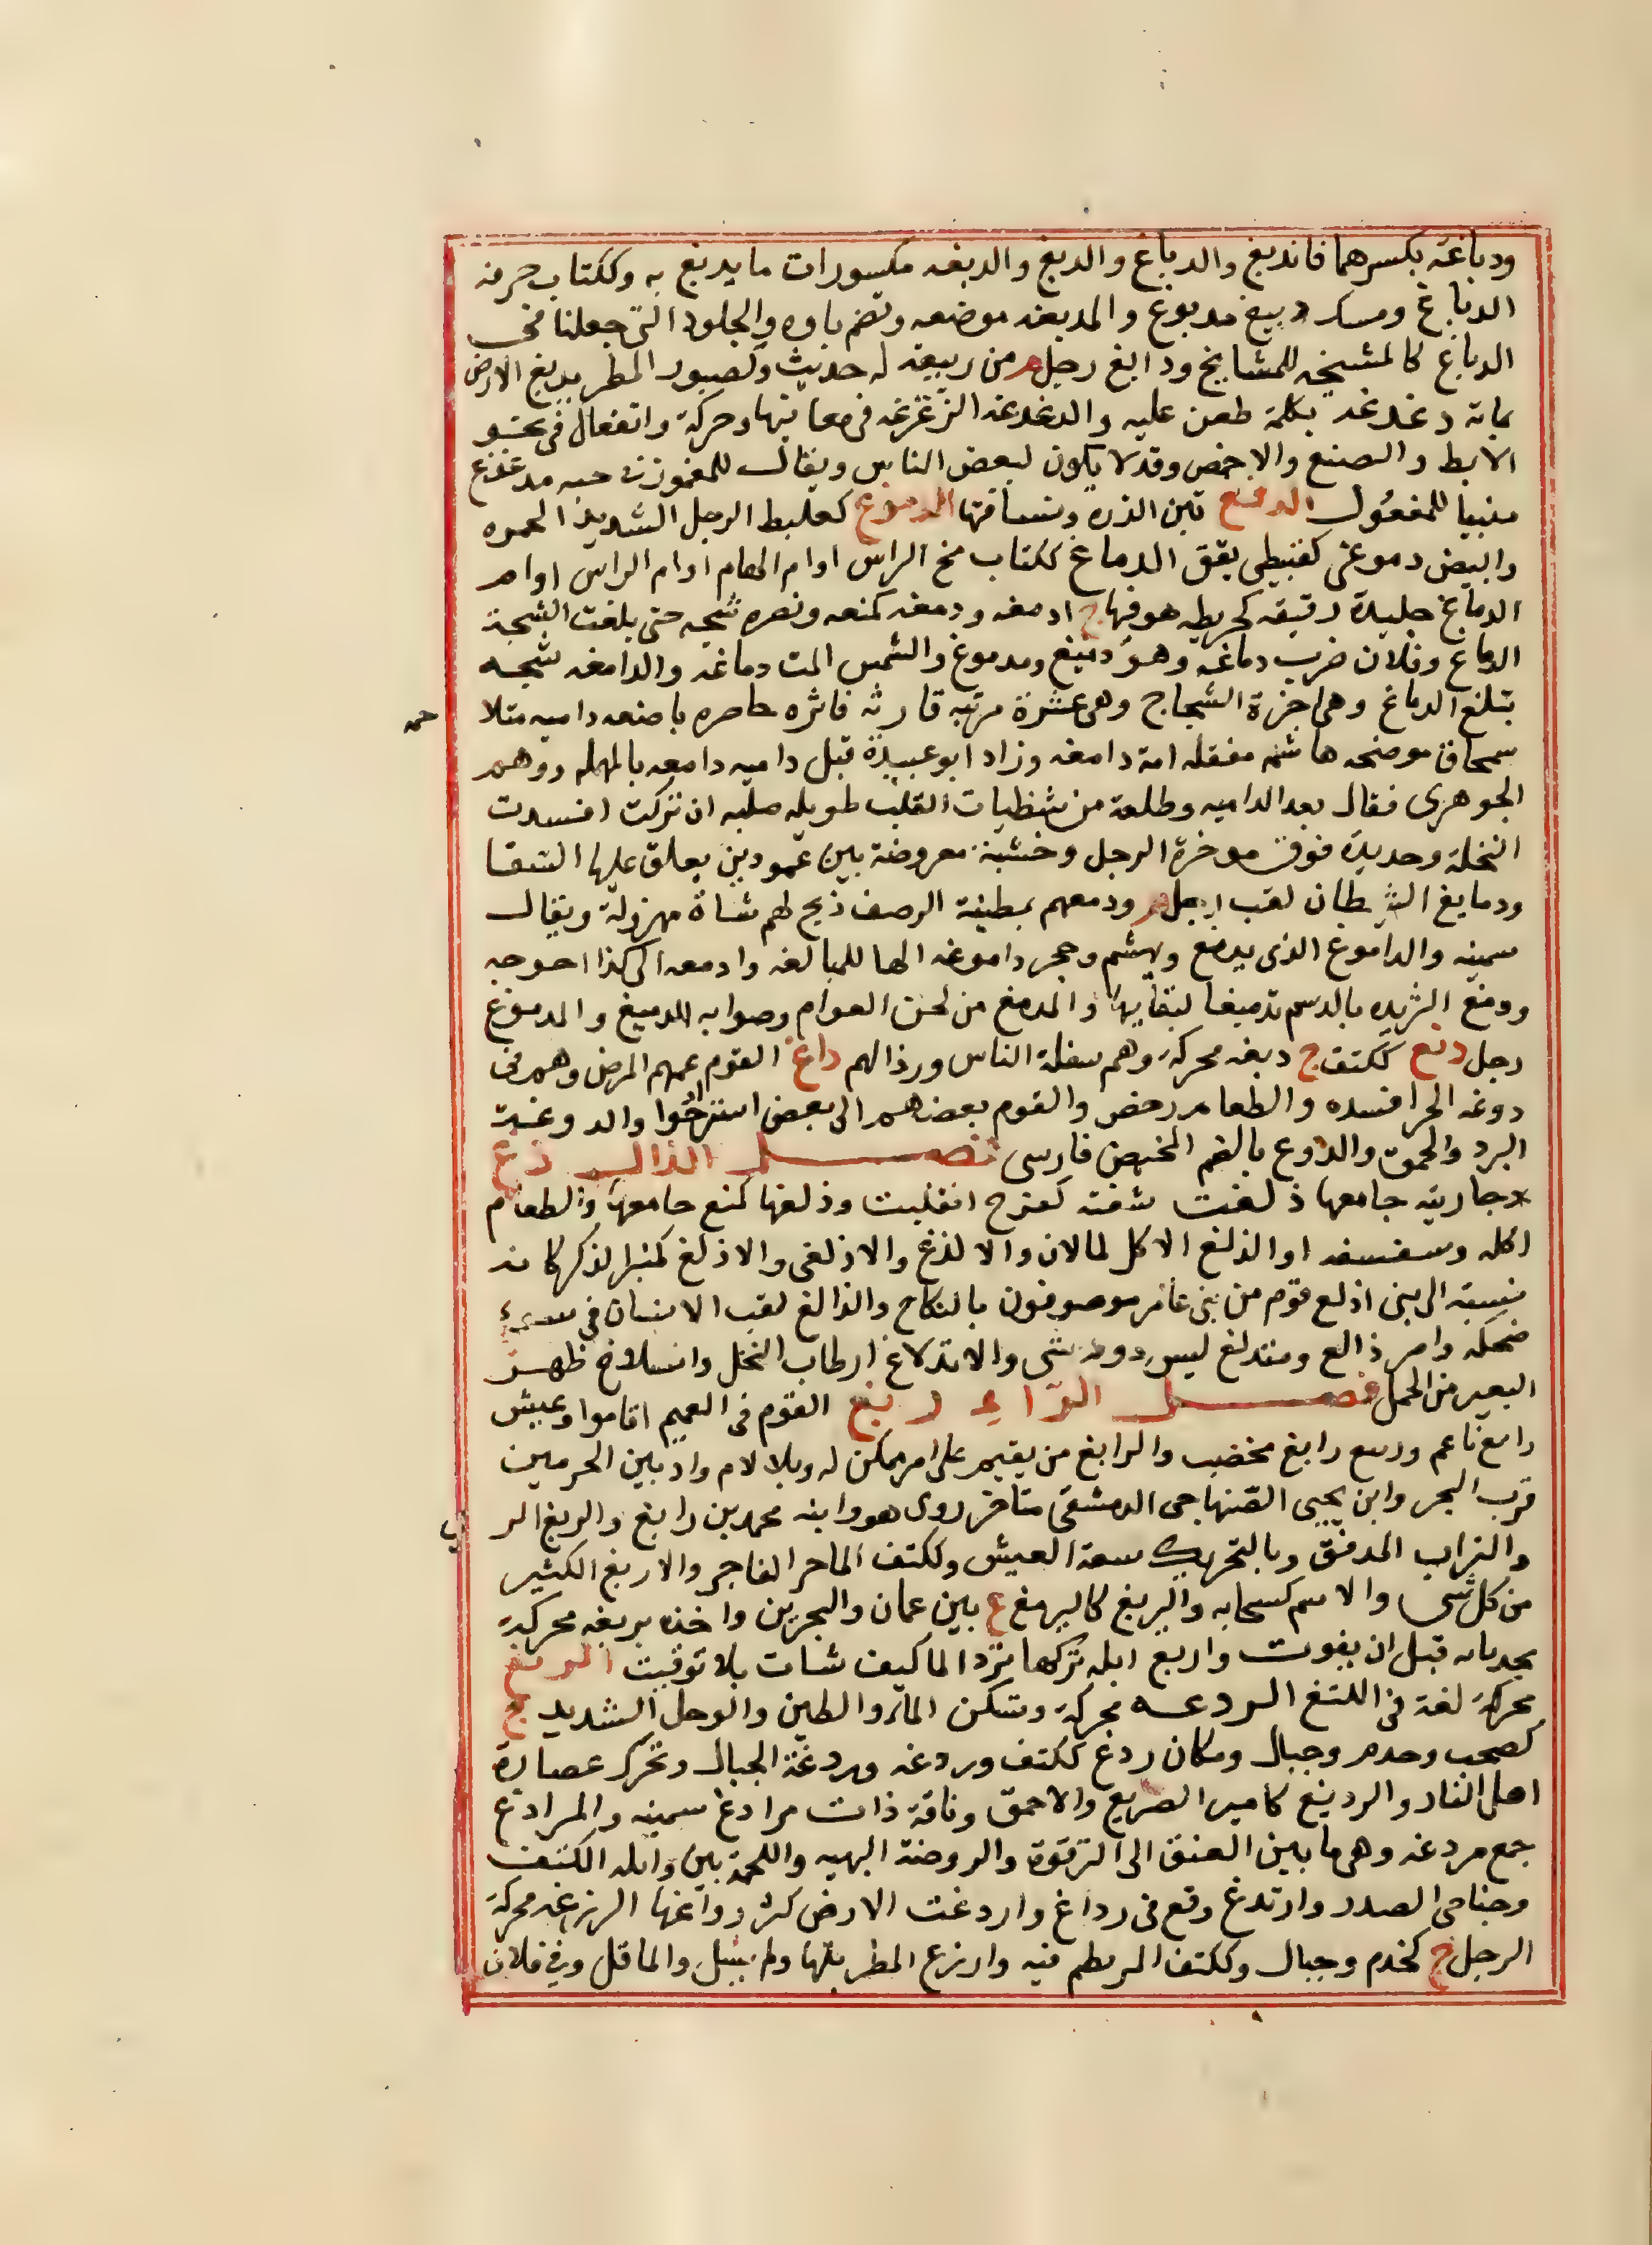 ودباغة بكسرهما فاندبغ والدباغ والدبغ والدبغه مكسورات ما يدبغ به وككتاب حرفه
الدباغ ومسك دبيغ مدبوغ والمدبغه موضعه وتضم باوه والجلود التى جعلنا فى
الدباغ كالمشيخه للمشايخ ودابغ رجل م من ربيعه له حديث وكصبور المطر يدبغ الارض
بمائه دغدغه بكلمة طعن عليه والدغدغه الزغزغه فى معانيها وحركة وانفعال فى نحو
الابط والبضع والاخمص وقد لا يكون لبعض الناس ويقال للمغموز فى حسبه مدغدغ
مبنيا للمفعول الدفغ تبن الذره ونسافتها الدمرغ كعلبط الرجل الشديد الحمره
وابيض دموغى كقنبيطى يقق الدماغ ككتاب مخ الراس او ام الهام او ام الراس او ام
الدماغ جليدة رقيقه كخريطه هو فيها ج ادمغه ودمغه كمنعه ونصره شجه حتى بلغت الشجة
الدماغ وفلان ضرب دماغه وهو دميغ ومدموغ والشمس المت دماغه والدامغه شجه
تبلغ الدماغ وهى اخرة الشجاج وهى عشرة مرتبه قاشرة حارصه باضعه داميه متلاحمه
سمحاق موضحه هاشمه منقله امة دامغه وزاد ابو عبيدة قبل داميه دامعه بالمهمله ووهم
الجوهرى فقال بعد الداميه وطلعة من شظيات القلب طويله صلبه ان تركت افسدت
النخلة وحديدة فوق موخرة الرحل وخشبة معروضة بين عمودين يعلق عليها السقا
ودميغ الشيطان لقب رجل م ودمغهم بمطفئة الرضف ذبح لهم شاة مهزولة ويقال
سمينه والداموغ الذى يدمغ ويهشم وحجر داموغه الها للمبالغه وادمغه الى كذا احوجه
ودمغ الثريده بالدسم تدميغا لبقها بها والمدمغ من لحن العوام وصوابه الدميغ والمدموغ
رجل دنغ ككتف ج دنغه محركة وهم سفلة الناس ورذالهم داغ القوم عمهم المرض وهم فى
دوغه الحر افسده والطعام رخص والقوم بعضهم الى بعض استراحوا والدوغة
البرد والحمق والدوغ بالضم المخيض فارسى فصل الذال ذغ
جاريته جامعها ذلغت شفته كفرح انقلبت وذلغها كمنع جامعها والطعام
اكله وسفسفه او الذلغ الاكل لما لان والا لذغ والاذلغى والاذلغ كمنبر الذكر كانه
نسبة الى بنى اذلغ قوم من بنى عامر موصوفون بالنكاح والذالغ لقب الانسان فى سوء
ضحكه وامر ذالغ ومتدلغ ليس دونه شى والانذلاغ ارطاب النخل وانسلاخ ظهر
البعير من الحمل فصل الراء ربغ القوم فى النعيم اقاموا وعيش
رابغ ناعم وربيع رابغ مخضب والرابغ من يقيم على امر يمكن له وبلا لام واد بين الحرمين
قرب البحر وابن يحيى الصنهاجى الدمشقى متاخر روى هو وابنه محمد بن رابغ والربغ الرى
والتراب المدقق وبالتحريك سعة العيش وككتف الماجر الفاجر والاربغ الكثير
من كل شى والاسم كسحابه واليربغ كاليرمغ ع بين عمان والبحرين واخذه بربغه محركة
بحدثانه قبل ان يفوت واربغ ابله تركها ترد الما كيف شات بلا توقيت الرثغ
محركة لغة فى اللثغ الردغه محركة وتسكن الماء والطين والوحل الشديد ج
كصحب وخدم وجبال ومكان ردغ ككتف وردغه وردغة الخبال وتحرك عصارة
اهل النار والرديغ كامير الصريع والاحمق وناقة ذات مرادغ سمينه والمرادغ
جمع مردغه وهى ما بين العنق الى الترقوة والروضة البهيه واللحمة بين وابله الكتف
وجناجى الصدر وارتدغ وقع فى رداغ واردغت الارض كثر رداغها الرزغه محركة
الرجل ج كخدم وجبال وككتف المرتطم فيه وارزغ المطر بلها ولم يسل والما قل وفى فلان